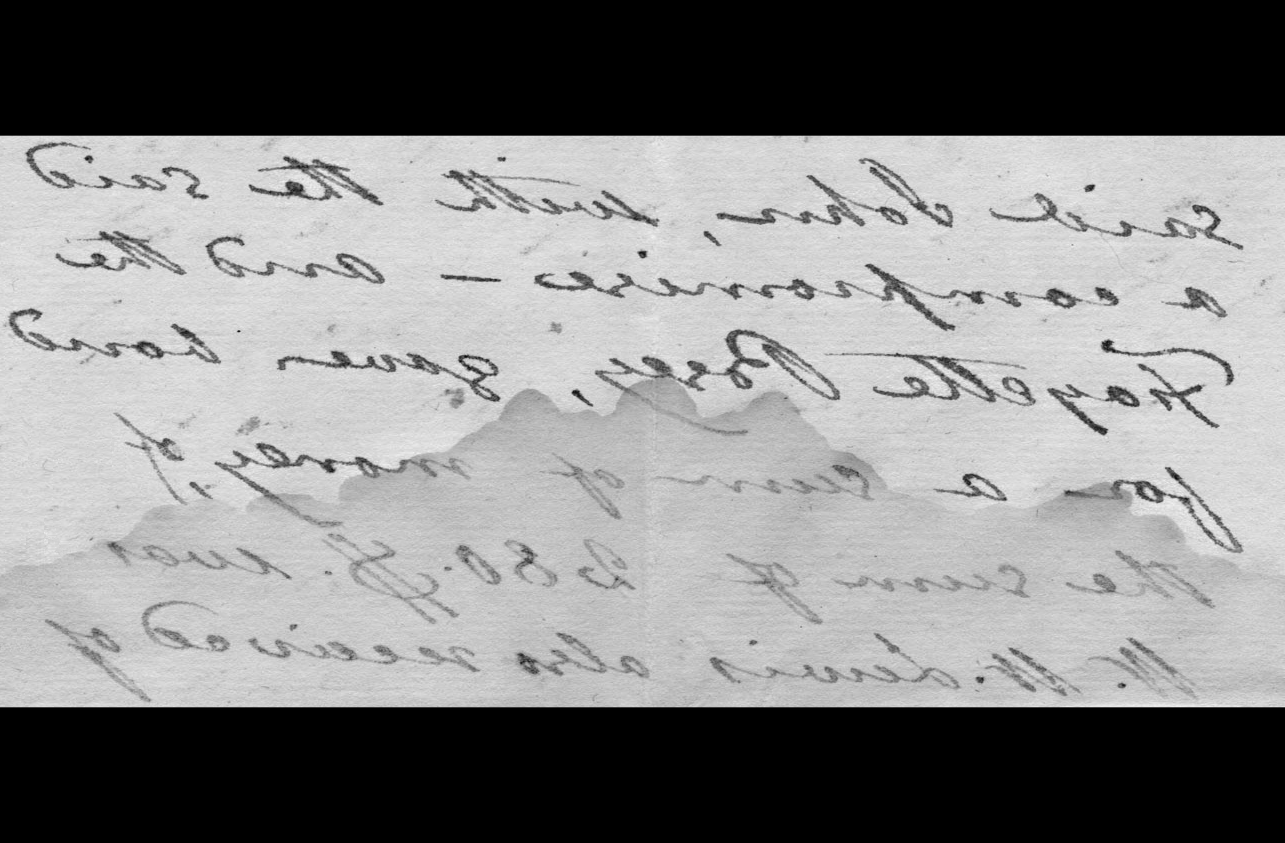 said John, with the said
a compromise — and the
Fayette Posey, gaven bond
for a sum of money, of
the sum of 280. was
W. W. Lewis also received of